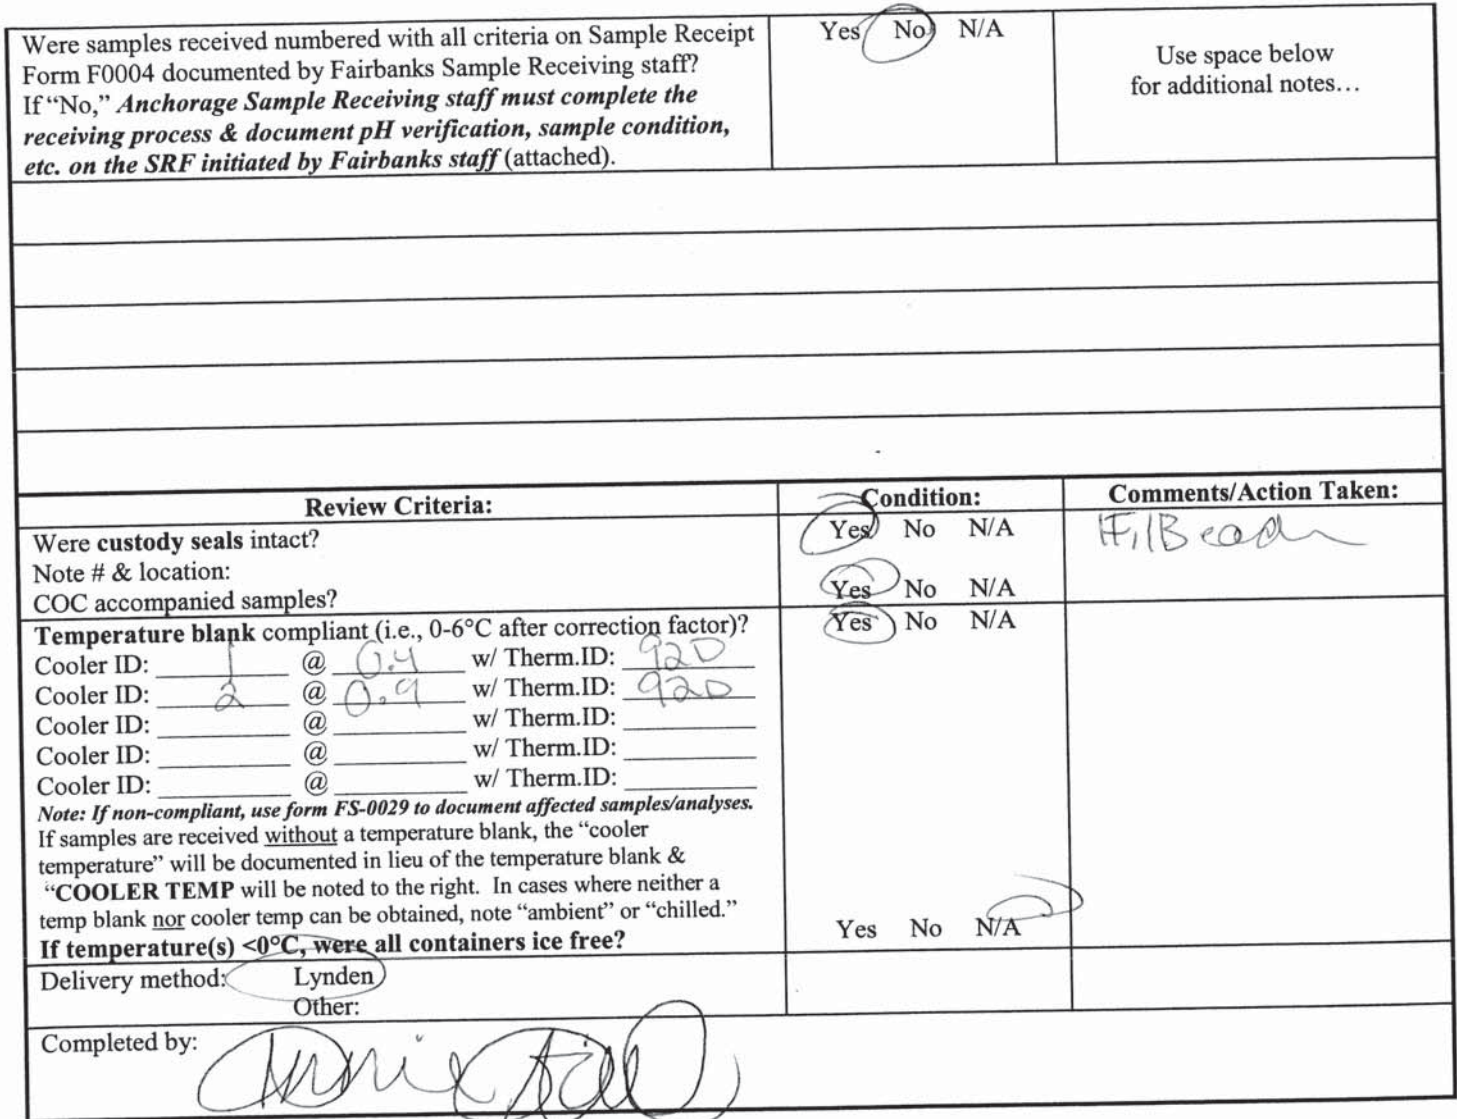 Were samples received numbered with all criteria on Sample Receipt Yes No N/A
Form F0004 documented by Fairbanks Sample Receiving staff? Use space below
If “No,” Anchorage Sample Receiving staff must complete the for additional notes…
receiving process & document pH verification, sample condition,
etc. on the SRF initiated by Fairbanks staff (attached).
Review Criteria: Condition: Comments/Action Taken:
Were custody seals intact? Yes No N/A
Note # & location:
COC accompanied samples? Yes No N/A
Temperature blank compliant (i.e., 0-6°C after correction factor)? Yes No N/A
Cooler ID: 1 @ 0.4 w/ Therm.ID: 92D
Cooler ID: 2 @ 0.9 w/ Therm.ID: 92D
Cooler ID: @ w/ Therm.ID:
Cooler ID: @ w/ Therm.ID:
Cooler ID: @ w/ Therm.ID:
Note: If non-compliant, use form FS-0029 to document affected samples/analyses.
If samples are received without a temperature blank, the “cooler
temperature” will be documented in lieu of the temperature blank &
“COOLER TEMP will be noted to the right. In cases where neither a
temp blank nor cooler temp can be obtained, note “ambient” or “chilled.”
If temperature(s) <0°C, were all containers ice free? Yes No N/A
Delivery method: Lynden
Other:
Completed by: